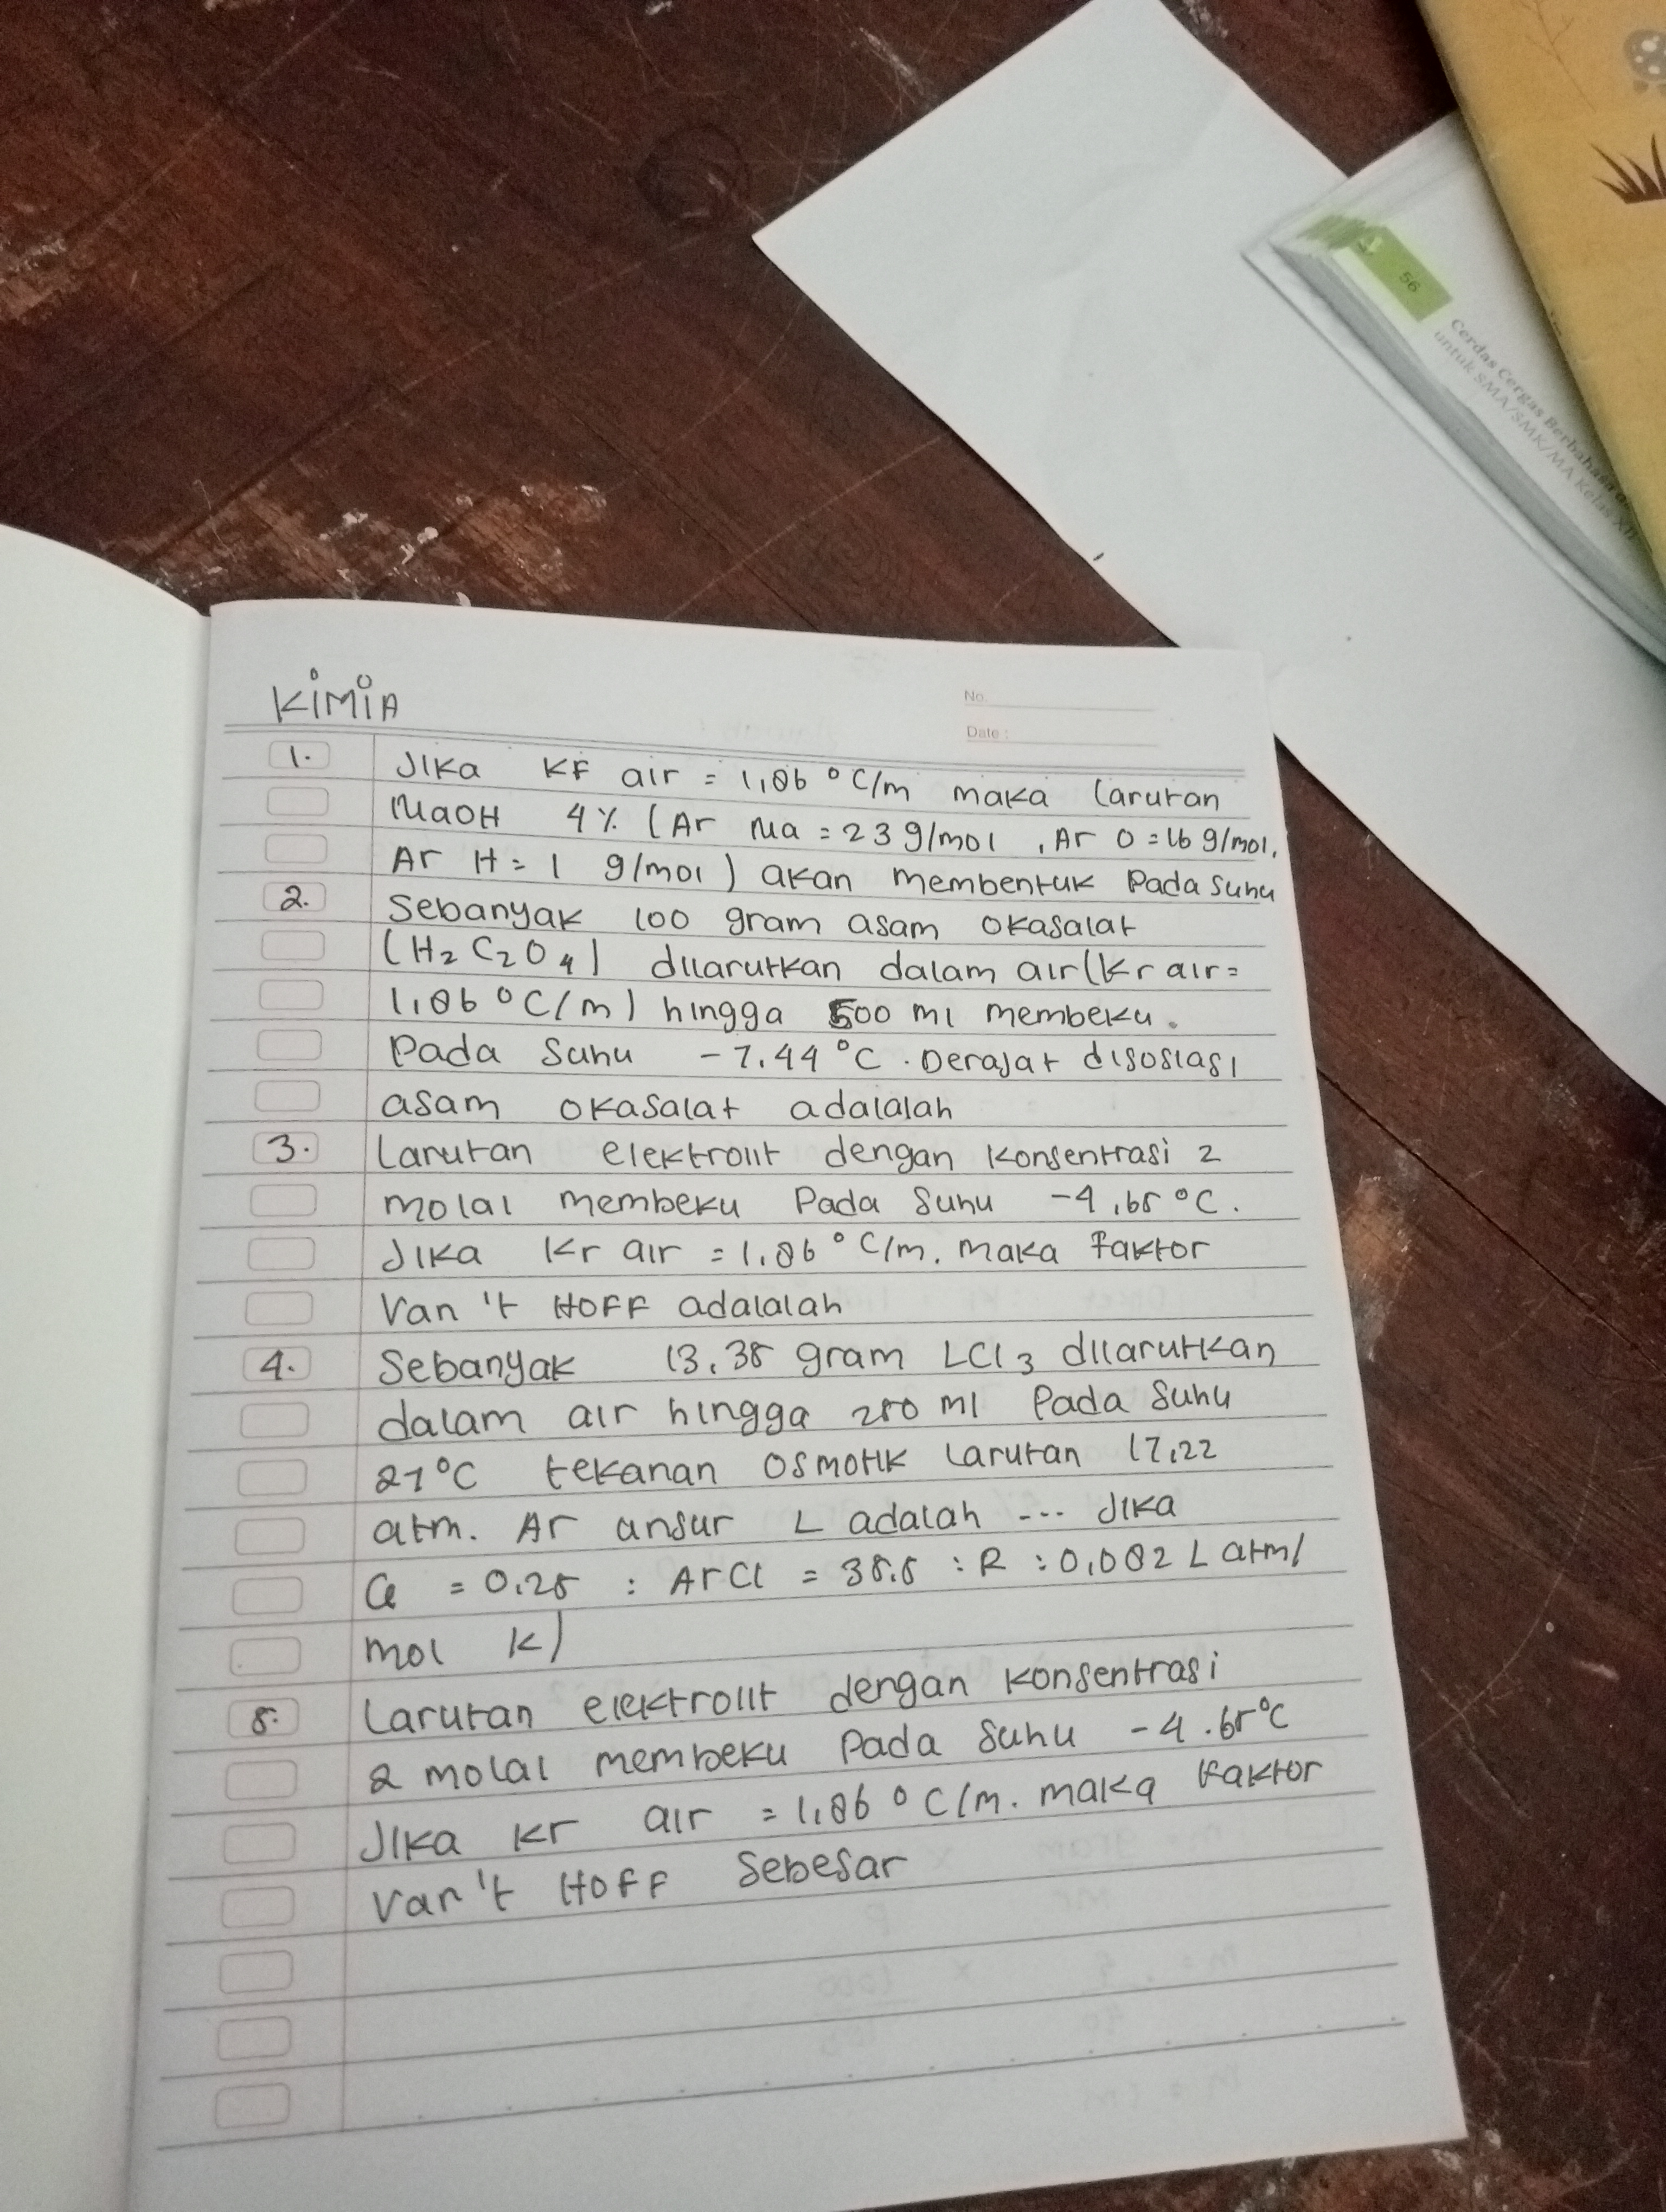 56
Cerdas Cergas Berbahasa d
untuk SMA/SMK/MA Kelas XII
KIMIA
No.
Date :
1. Jika KF air = 1,86 °C/m maka larutan
NaOH 4% (Ar Na = 23 g/mol, Ar O = 16 g/mol,
Ar H = 1 g/mol) akan membentuk Pada suhu
2. Sebanyak 100 gram asam okasalat
(H2C2O4) dilarutkan dalam air (Kr air =
1,86 °C/m) hingga 500 ml membeku.
Pada suhu -7.44 °C. Derajat disosiasi
asam okasalat adalalah
3. Larutan elektrolit dengan konsentrasi 2
molal membeku Pada suhu -4,65 °C.
Jika Kr air = 1.86 °C/m. maka faktor
Van 't HOFF adalalah
4. Sebanyak 13,35 gram LCl3 dilarutkan
dalam air hingga 250 ml Pada suhu
27 °C tekanan osmotik larutan 17,22
atm. Ar ansur L adalah ... Jika
a = 0,25 : Ar Cl = 35,5 : R : 0,082 L atm/
mol K)
5. Larutan elektrolit dengan konsentrasi
2 molal membeku Pada suhu -4.65 °C
Jika Kr air = 1,86 °C/m. maka faktor
Van 't HOFF sebesar